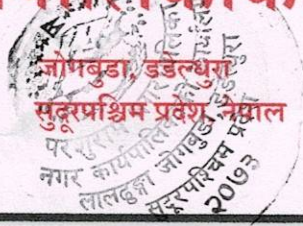 जोगबुडा, डडेल्धुरा
सुदूरपश्चिम प्रदेश, नेपाल
परशुराम
नगर कार्यपालिकाको कार्यालय
लालढुङ्गा जोगबुडा, डडेल्धुरा
सुदूरपश्चिम प्रदेश
२०७३